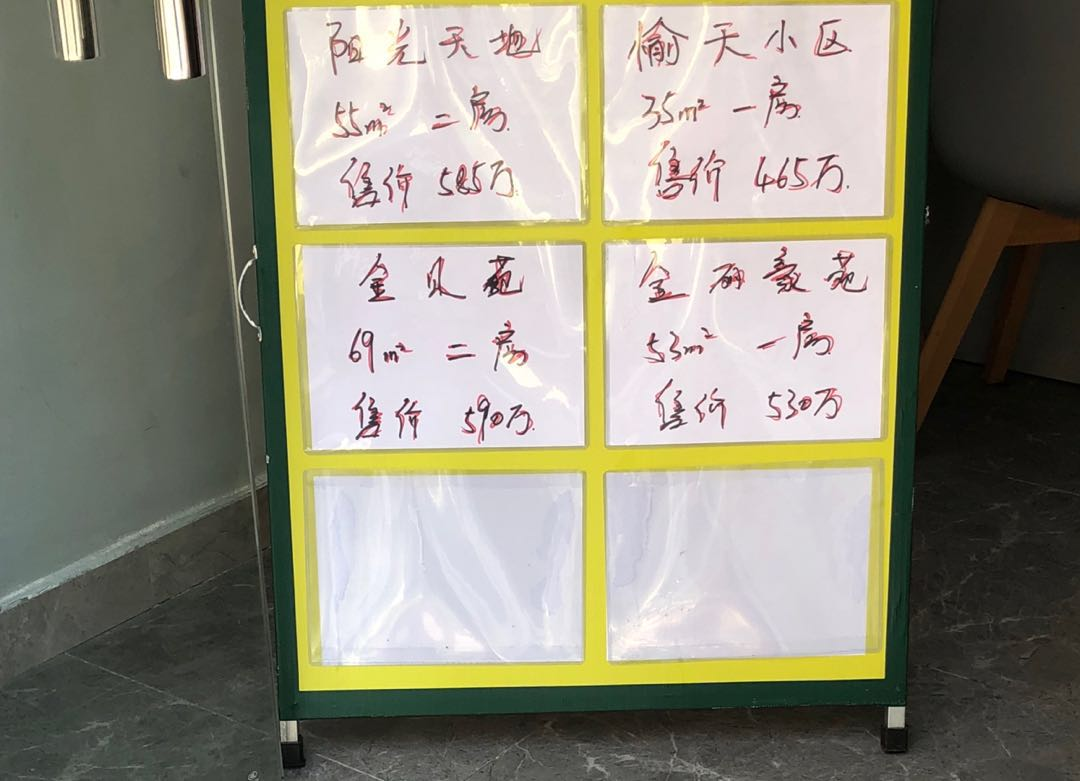 阳光天地
55m² 二房
售价 585万
愉天小区
35m² 一房
售价 465万.
金贝苑
69m² 二房
售价 590万
金丽豪苑
53m² 一房
售价 530万